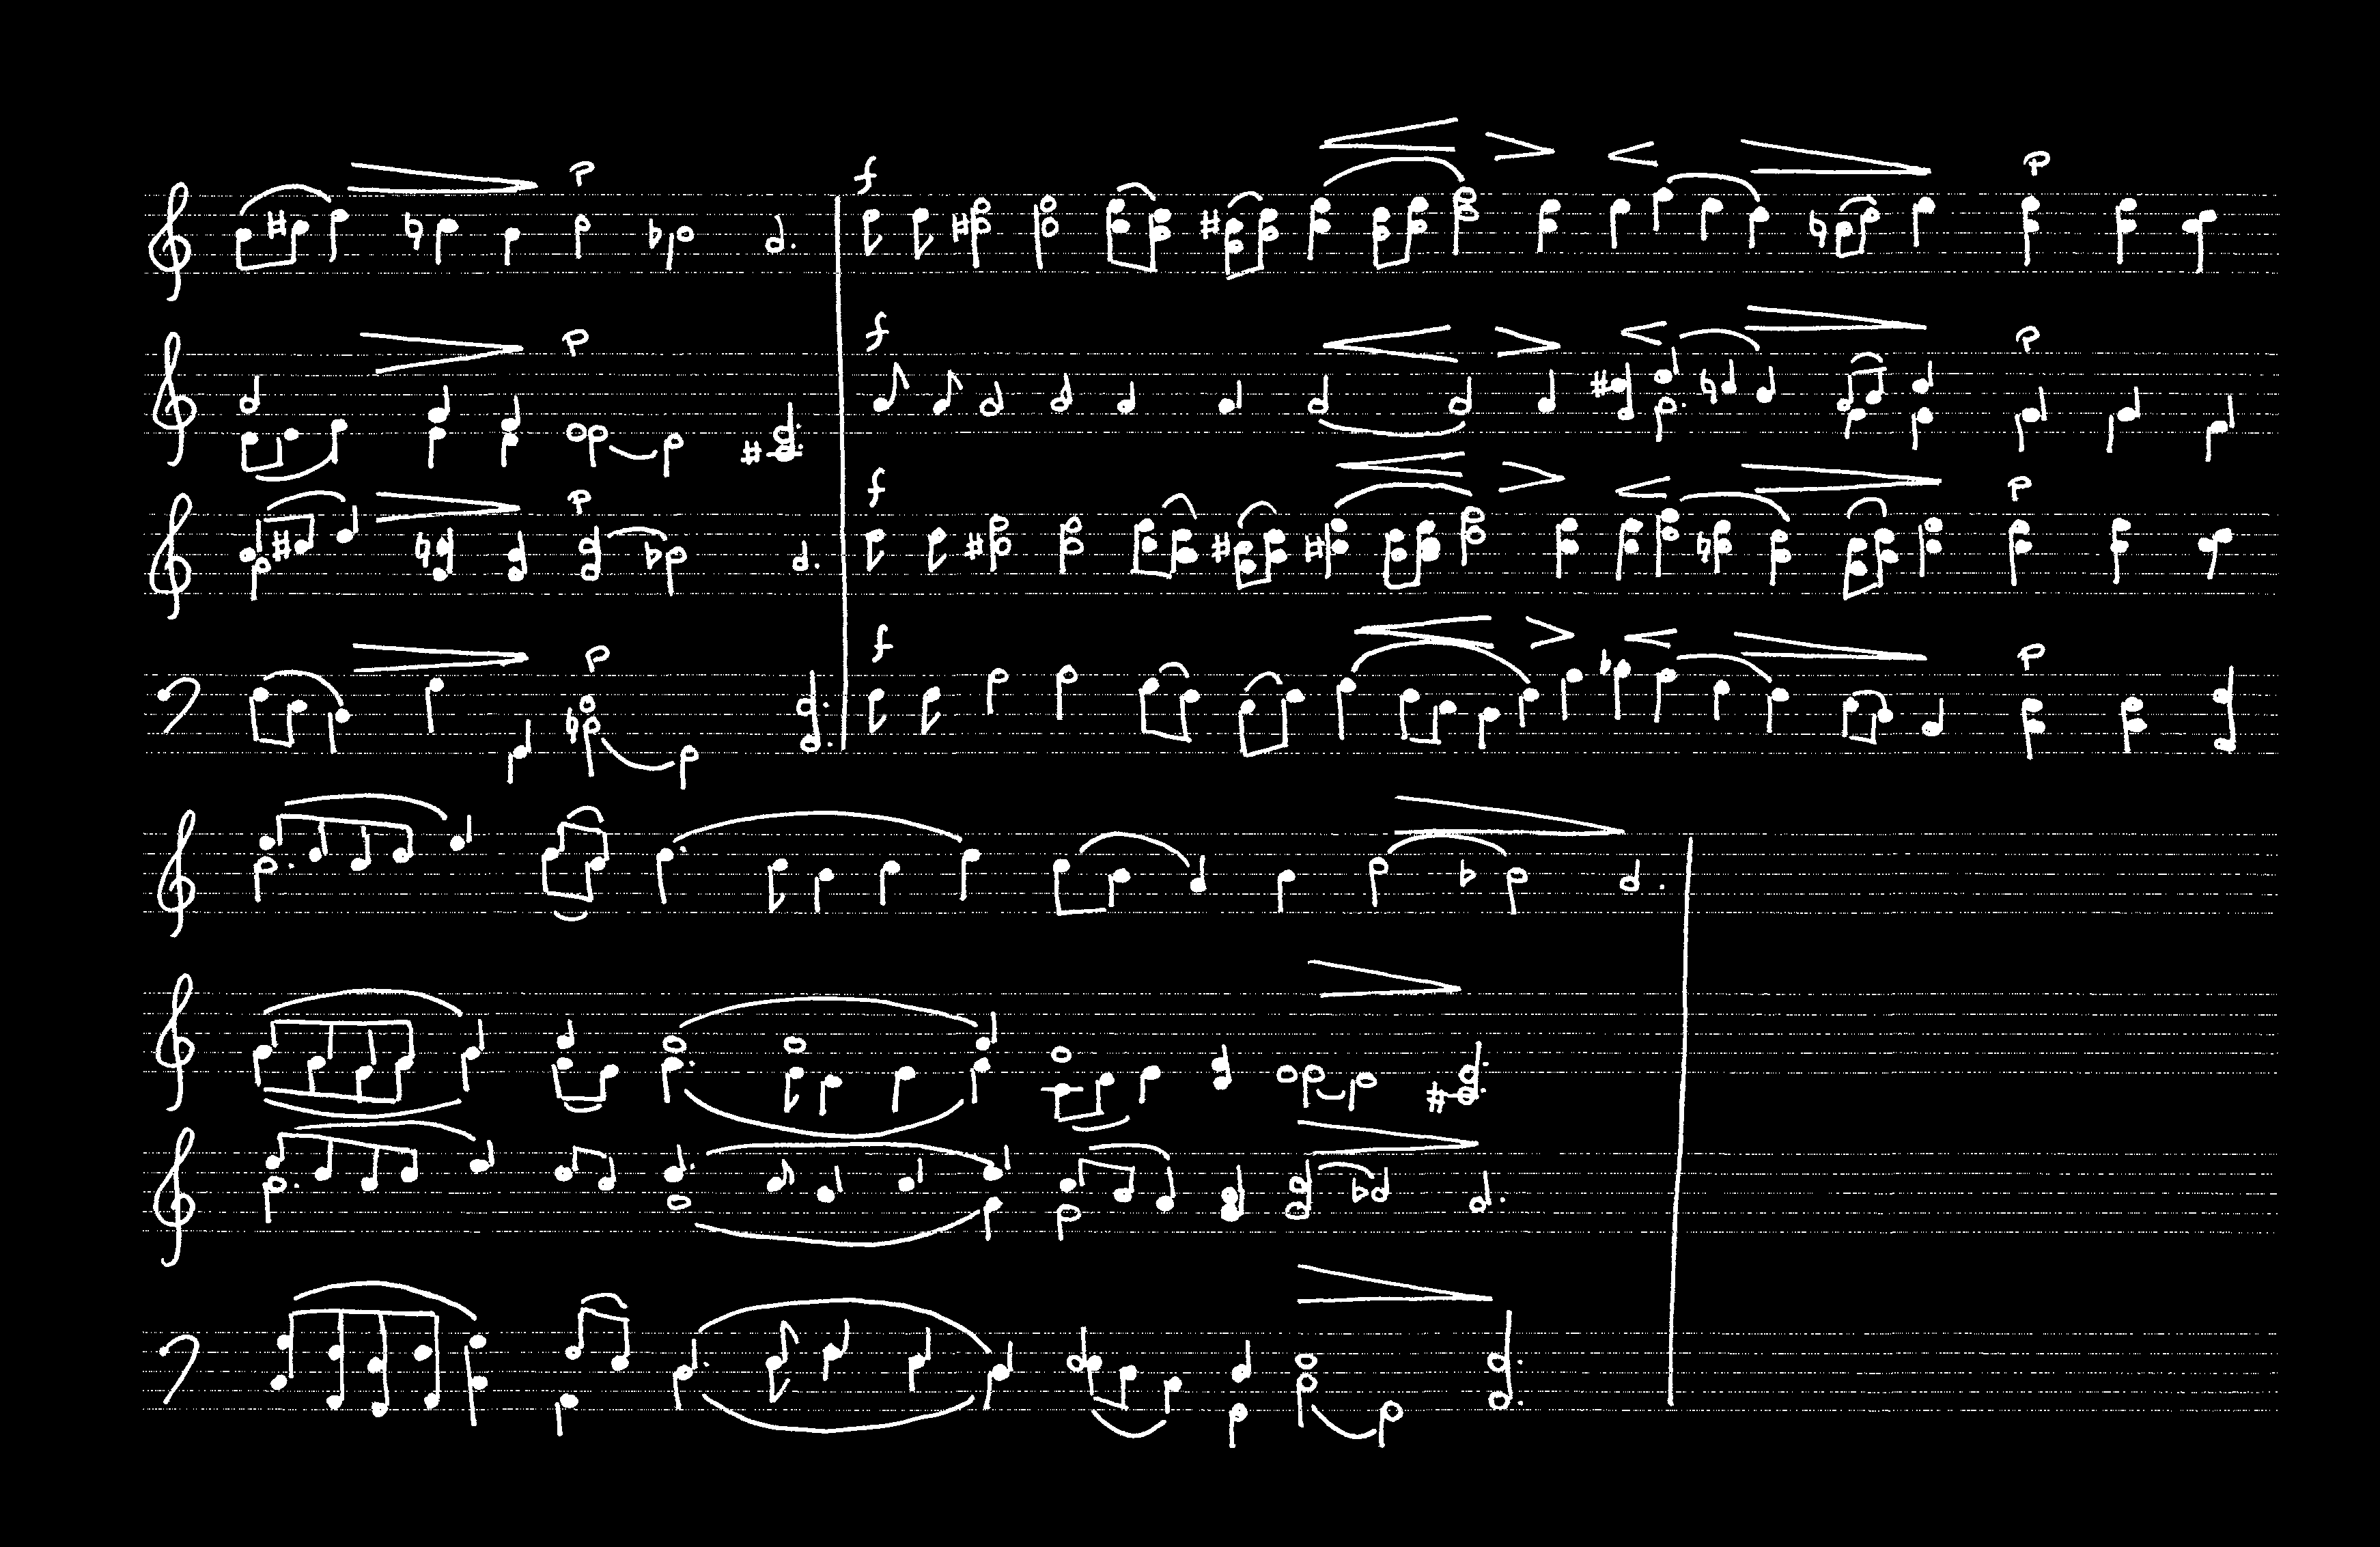 p
f
p
p
f
p
p
f
p
p
f
p